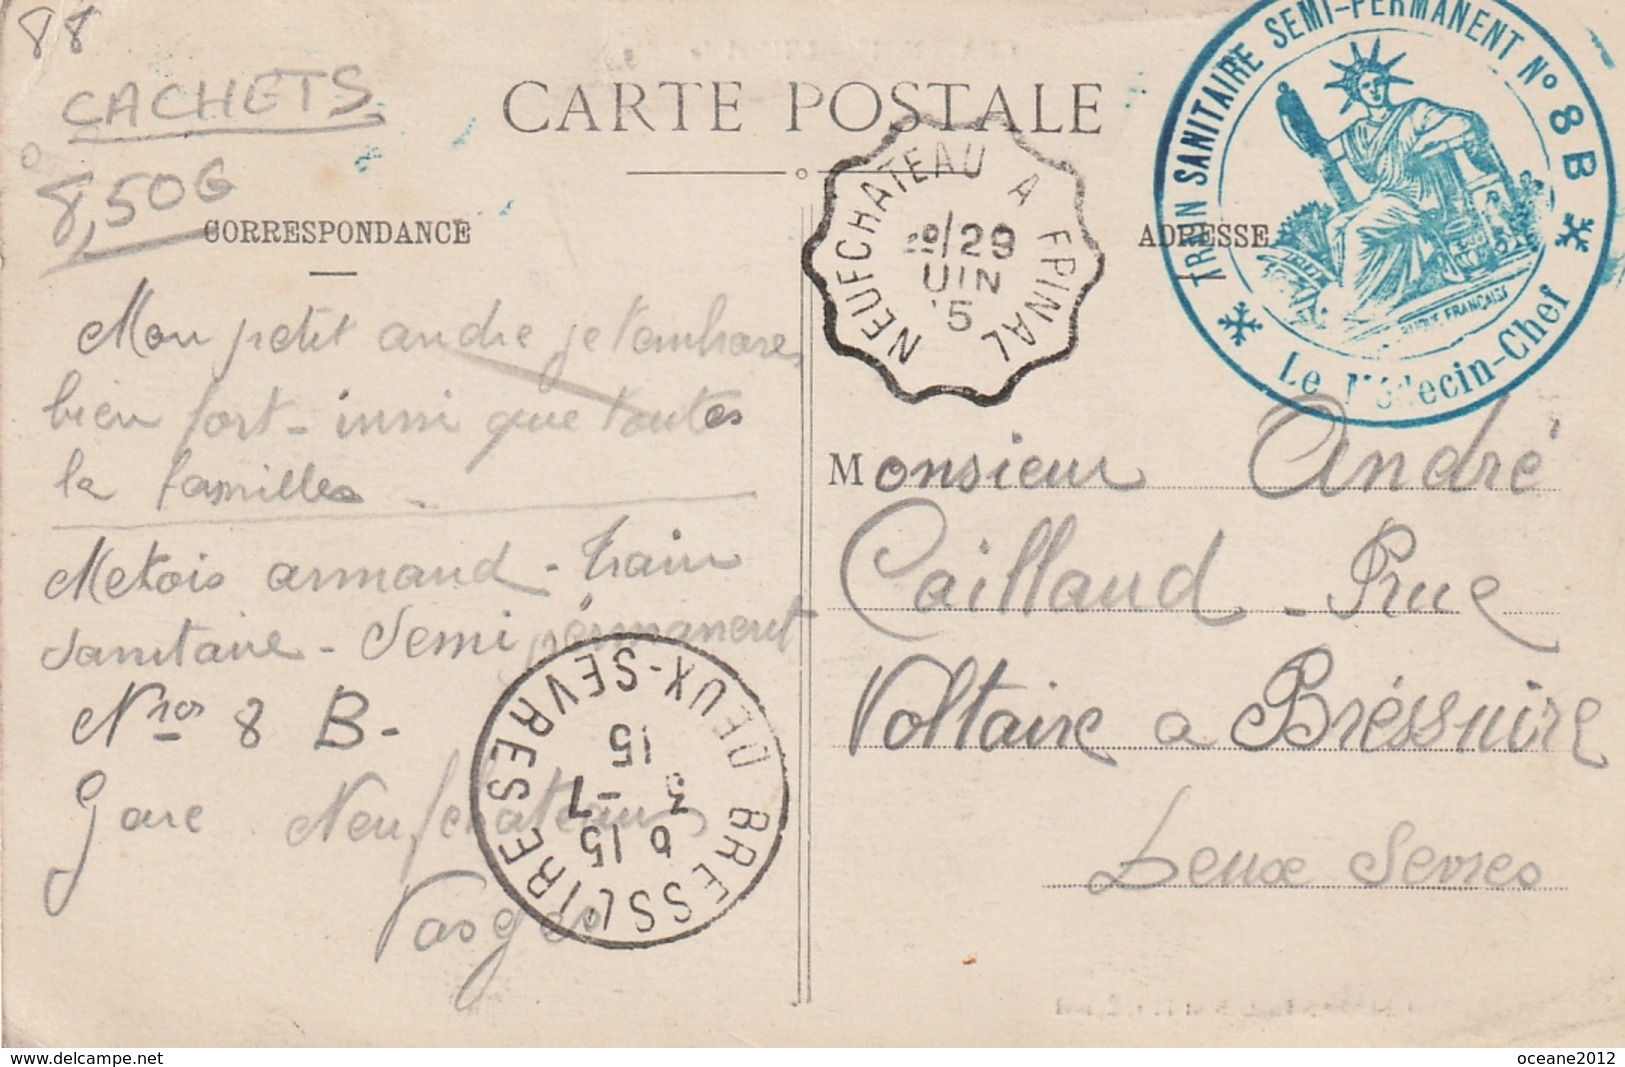 88
CACHETS
8,50G
CARTE POSTALE
CORRESPONDANCE
ADRESSE
TRAIN SANITAIRE SEMI-PERMANENT N° 8 B
Le Médecin-Chef
NEUFCHATEAU A EPINAL
29
UIN
5
Mon petit andre je tembrasse
bien fort - insi que toutes
la familles -
Metois armand - train
sanitaire - Semi permanent
Nro 8 B -
gare Neufchateau
Vosges
BRESSUIRE
DEUX-SEVRES
6 15
3 -7
15
Monsieur André
Caillaud - Rue
Voltaire a Bréssuire
Deux Sevres
http://www.delcampe.net
oceane2012